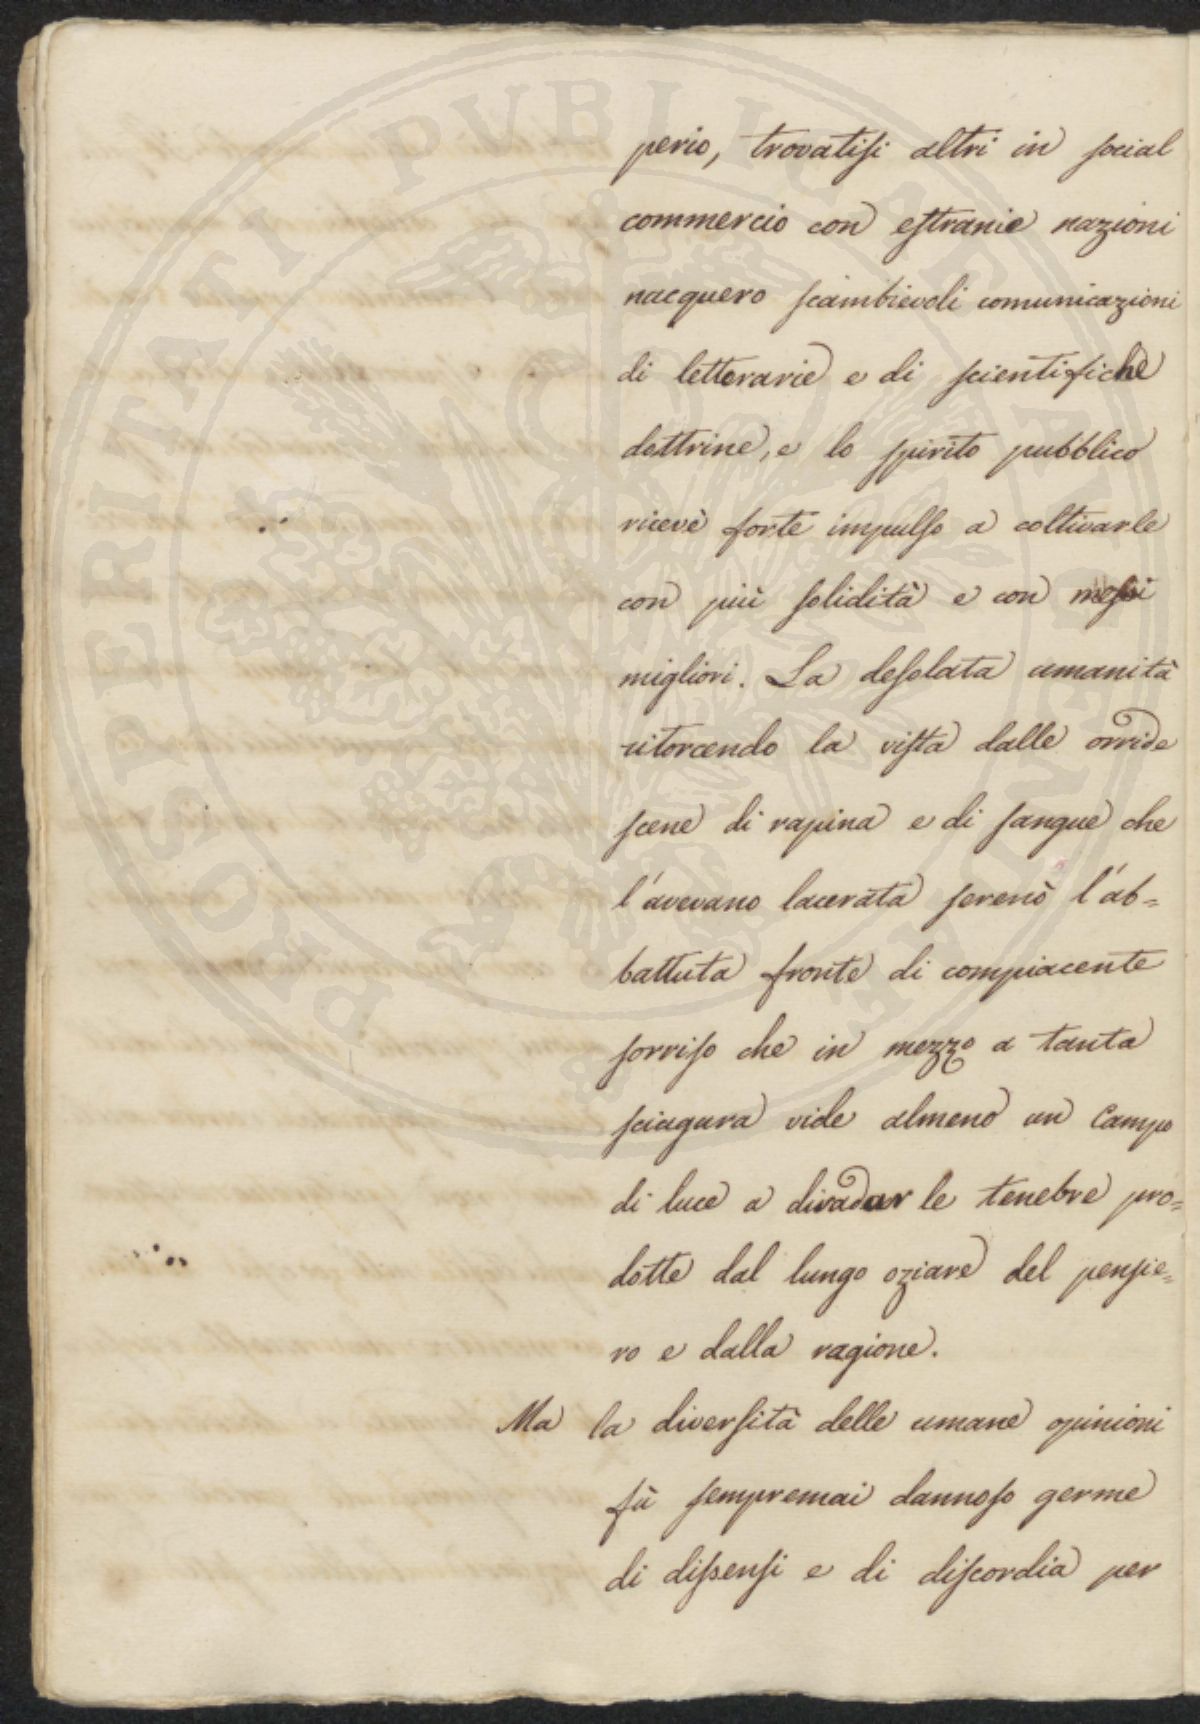 perio, trovatisi altri in social
commercio con estranie nazioni
nacquero scambievoli comunicazioni
di letterarie e di scientifiche
dottrine, e lo spirito pubblico
ricevè forte impulso a coltivarle
con più solidità e con
migliori. La desolata umanità
ritorcendo la vista dalle orride
scene di rapina e di sangue che
l'avevano lacerata serenò l'ab=
battuta fronte di compiacente
sorriso che in mezzo a tanta
sciagura vide almeno un Campo
di luce a diradar le tenebre pro=
dotte dal lungo oziare del pensie=
ro e dalla ragione.
Ma la diversità delle umane opinioni
fù sempremai dannoso germe
di dissensi e di discordia per
PROSPERITATI PUBLICAE AUGENDAE